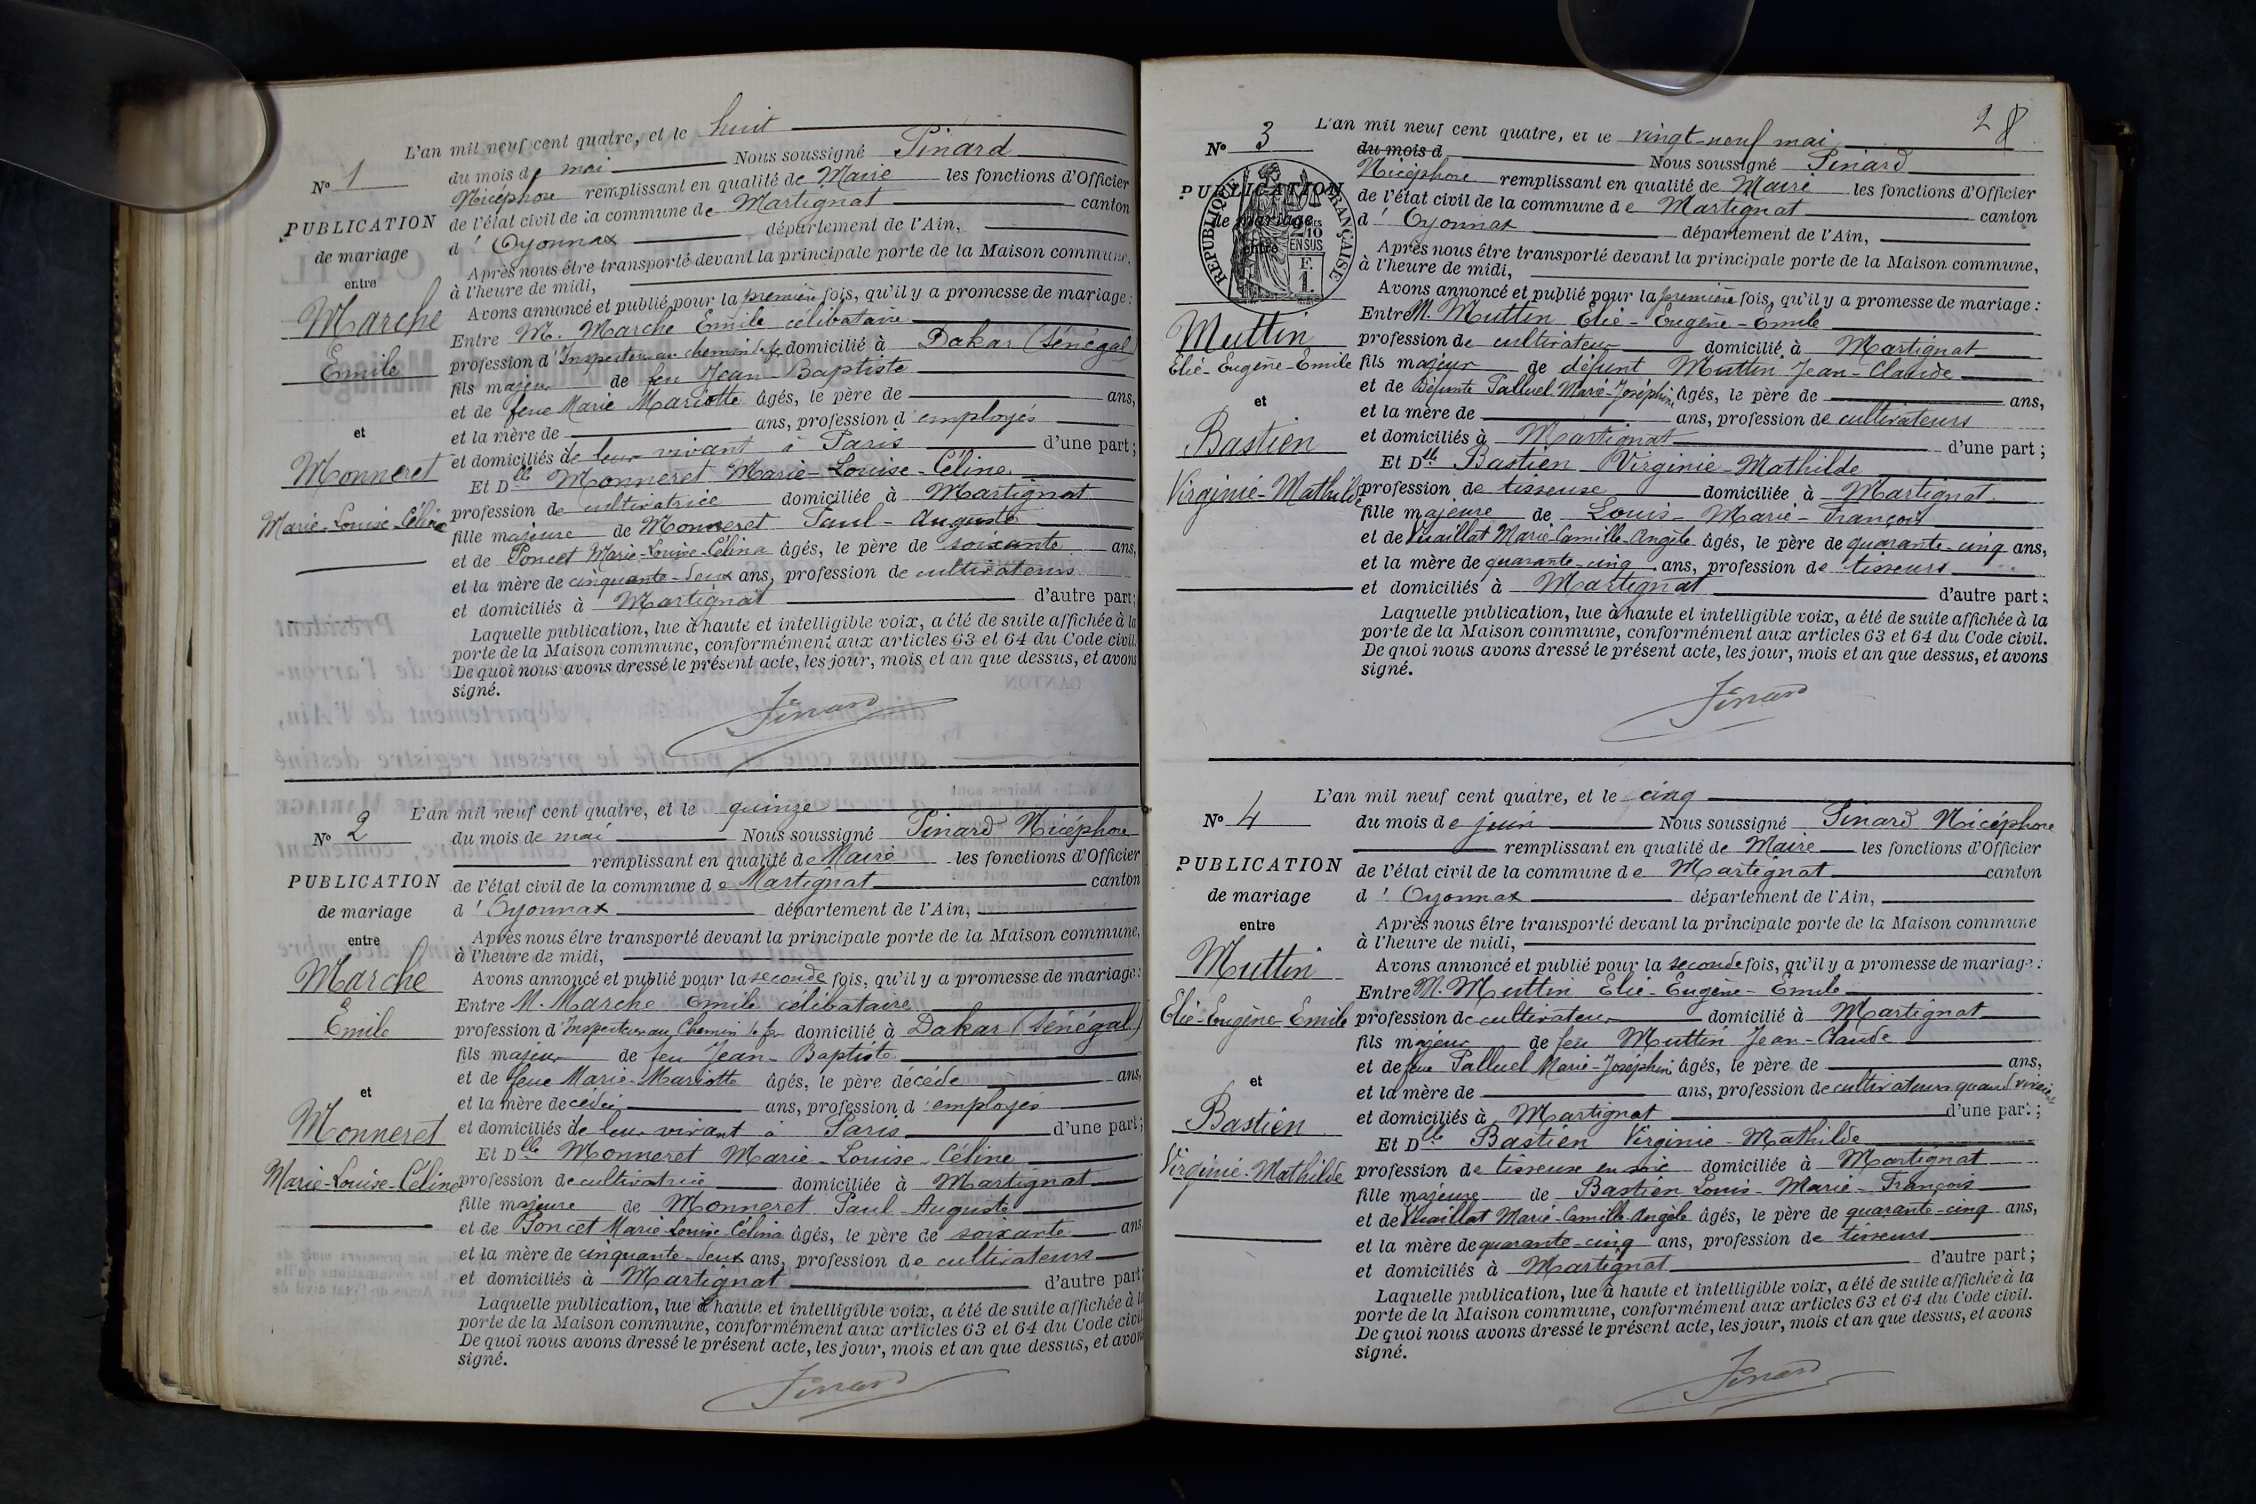 L'an mil neuf cent quatre, et le huit
N° 1
du mois de mai Nous soussigné Pinard
Nicéphore remplissant en qualité de Maire les fonctions d'Officier
PUBLICATION
de mariage
entre
Marche
Emile
et
Monneret
Marie-Louise-Céline
de l'état civil de la commune de Martignat canton
d'Oyonnax département de l'Ain,
Après nous être transporté devant la principale porte de la Maison commune,
à l'heure de midi,
Avons annoncé et publié pour la première fois, qu'il y a promesse de mariage :
Entre M. Marche Emile célibataire
profession d'Inspecteur au chemin de fer domicilié à Dakar (Sénégal)
fils majeur de feu Jean-Baptiste
et de feue Marie Mariotte âgés, le père de ans,
et la mère de ans, profession d'employés
et domiciliés de leur vivant à Paris d'une part ;
Et Dlle Monneret Marie-Louise-Céline
profession de cultivatrice domiciliée à Martignat
fille majeure de Monneret Paul-Auguste
et de Poncet Marie-Louise-Célina âgés, le père de soixante ans,
et la mère de cinquante-deux ans, profession de cultivateurs
et domiciliés à Martignat d'autre part ;
Laquelle publication, lue à haute et intelligible voix, a été de suite affichée à la
porte de la Maison commune, conformément aux articles 63 et 64 du Code civil.
De quoi nous avons dressé le présent acte, les jour, mois et an que dessus, et avons
signé.
Pinard
L'an mil neuf cent quatre, et le quinze
N° 2
du mois de mai Nous soussigné Pinard Nicéphore
remplissant en qualité de Maire les fonctions d'Officier
PUBLICATION
de mariage
entre
Marche
Emile
et
Monneret
Marie-Louise-Céline
de l'état civil de la commune de Martignat canton
d'Oyonnax département de l'Ain,
Après nous être transporté devant la principale porte de la Maison commune,
à l'heure de midi,
Avons annoncé et publié pour la seconde fois, qu'il y a promesse de mariage :
Entre M. Marche Emile célibataire
profession d'Inspecteur au Chemin de fer domicilié à Dakar (Sénégal)
fils majeur de feu Jean-Baptiste
et de feue Marie-Mariotte âgés, le père décédé ans,
et la mère decédée ans, profession d'employés
et domiciliés de leur vivant à Paris d'une part ;
Et Dlle Monneret Marie-Louise-Céline
profession de cultivatrice domiciliée à Martignat
fille majeure de Monneret Paul Auguste
et de Poncet Marie-Louise-Célina âgés, le père de soixante ans
et la mère de cinquante-deux ans, profession de cultivateurs
et domiciliés à Martignat d'autre part
Laquelle publication, lue à haute et intelligible voix, a été de suite affichée à la
porte de la Maison commune, conformément aux articles 63 et 64 du Code civil
De quoi nous avons dressé le présent acte, les jour, mois et an que dessus, et avons
signé.
Pinard
28
L'an mil neuf cent quatre, et le vingt-neuf mai
N° 3
du mois d Nous soussigné Pinard
Nicéphore remplissant en qualité de Maire les fonctions d'Officier
PUBLICATION
de mariage
entre
RÉPUBLIQUE FRANÇAISE
2/10
EN SUS
F.
1.
Muttin
Elie-Eugène-Emile
et
Bastien
Virginie-Mathilde
de l'état civil de la commune de Martignat canton
d'Oyonnax département de l'Ain,
Après nous être transporté devant la principale porte de la Maison commune,
à l'heure de midi,
Avons annoncé et publié pour la première fois, qu'il y a promesse de mariage :
Entre M. Muttin Elie-Eugène-Emile
profession de cultivateur domicilié à Martignat
fils majeur de défunt Muttin Jean-Claude
et de défunte Palluel Marie-Joséphine âgés, le père de ans,
et la mère de ans, profession de cultivateurs
et domiciliés à Martignat d'une part ;
Et Dlle Bastien Virginie-Mathilde
profession de tisseuse domiciliée à Martignat
fille majeure de Louis-Marie-François
et de Vuaillat Marie-Camille-Angèle âgés, le père de quarante-cinq ans,
et la mère de quarante-cinq ans, profession de tisseurs
et domiciliés à Martignat d'autre part ;
Laquelle publication, lue à haute et intelligible voix, a été de suite affichée à la
porte de la Maison commune, conformément aux articles 63 et 64 du Code civil.
De quoi nous avons dressé le présent acte, les jour, mois et an que dessus, et avons
signé.
Pinard
L'an mil neuf cent quatre, et le cinq
N° 4
du mois de juin Nous soussigné Pinard Nicéphore
remplissant en qualité de Maire les fonctions d'Officier
PUBLICATION
de mariage
entre
Muttin
Elie-Eugène-Emile
et
Bastien
Virginie-Mathilde
de l'état civil de la commune de Martignat canton
d'Oyonnax département de l'Ain,
Après nous être transporté devant la principale porte de la Maison commune
à l'heure de midi,
Avons annoncé et publié pour la seconde fois, qu'il y a promesse de mariage :
Entre M. Muttin Elie-Eugène-Emile
profession de cultivateur domicilié à Martignat
fils majeur de feu Muttin Jean-Claude
et de feue Palluel Marie-Joséphine âgés, le père de ans,
et la mère de ans, profession de cultivateurs quand vivaient
et domiciliés à Martignat d'une part ;
Et Dlle Bastien Virginie-Mathilde
profession de tisseuse en soie domiciliée à Martignat
fille majeure de Bastien Louis-Marie-François
et de Vuaillat Marie-Camille Angèle âgés, le père de quarante-cinq ans,
et la mère de quarante-cinq ans, profession de tisseurs
et domiciliés à Martignat d'autre part ;
Laquelle publication, lue à haute et intelligible voix, a été de suite affichée à la
porte de la Maison commune, conformément aux articles 63 et 64 du Code civil.
De quoi nous avons dressé le présent acte, les jour, mois et an que dessus, et avons
signé.
Pinard